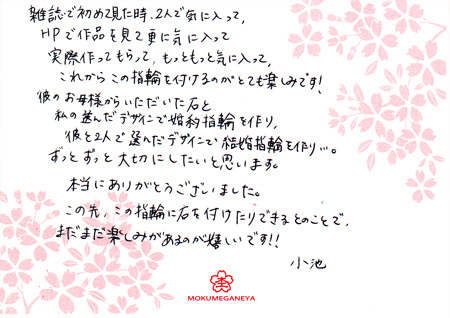 雑誌で初めて見た時、2人で気に入って、
HPで作品を見て更に気に入って
実際作ってもらって、もっともっと気に入って、
これからこの指輪を付けるのがとても楽しみです!
彼のお母様からいただいた石と
私の選んだデザインで婚約指輪を作り、
彼と2人で選んだデザインで結婚指輪を作り…。
ずっとずっと大切にしたいと思います。
本当にありがとうございました。
この先、この指輪に石を付けたりできるとのことで、
まだまだ楽しみがあるのが嬉しいです!!
小池
MOKUMEGANEYA